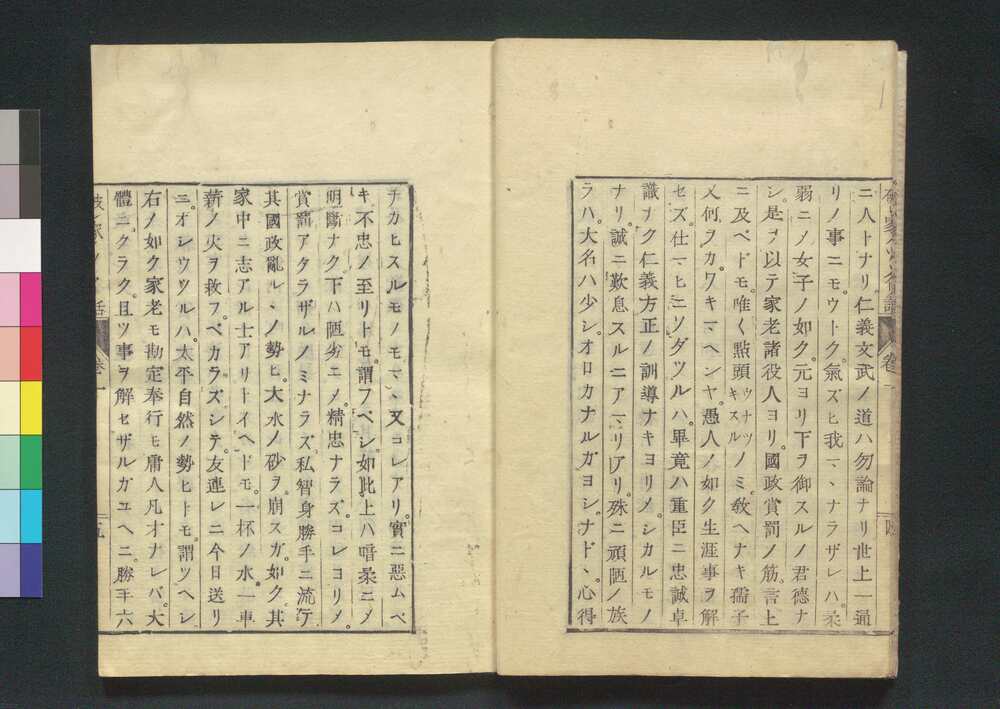 ニ人トナリ。仁義文武ノ道ハ勿論ナリ世上一通
リノ事ニモウトク。氣ズヒ我ママナラザレハ。柔
弱ニメ女子ノ如ク。元ヨリ下ヲ御スルノ君德ナ
シ。是ヲ以テ家老諸役人ヨリ。國政賞罰ノ筋。言上
ニ及ベドモ。唯く點頭ウナツキスルノミ。敎ヘナキ孺子
又何ヲカワキマヘンヤ。愚人ノ如ク生涯事ヲ解
セズ。仕マヒニソダツルハ。畢竟ハ重臣ニ忠誠卓
識ナク仁義方正ノ訓導ナキヨリメ。シカルモノ
ナリ。誠ニ歎息スルニアマリアリ。殊ニ頑陋ノ族
ラハ。大名ハ少シ。オロカナルガヨシ。ナド、心得
卷一
四
チカヒスルモノモママ、又コレアリ。實ニ惡ムベ
キ。不忠ノ至リトモ。謂フベシ。如此上ハ暗柔ニメ
明斷ナク下ハ陋劣ニメ。精忠ナラズ。コレヨリメ。
賞罰アタラザルノミナラズ。私智身勝手ニ流テ
其國政亂ル、ノ勢ヒ。大水ノ砂ヲ。崩スガ。如ク。其
家中ニ志アル士アリトイヘドモ。一杯ノ水。一車
薪ノ火ヲ救フベカラズシテ。友連レニ今日送リ
ニ。オシウツルハ。太平自然ノ勢ヒトモ。謂ツヘシ
右ノ如ク家老モ勘定奉行モ庸人凡才ナレバ。大
體ニクラク。且ツ事ヲ解セザルガユヘニ。勝手六
卷一
五